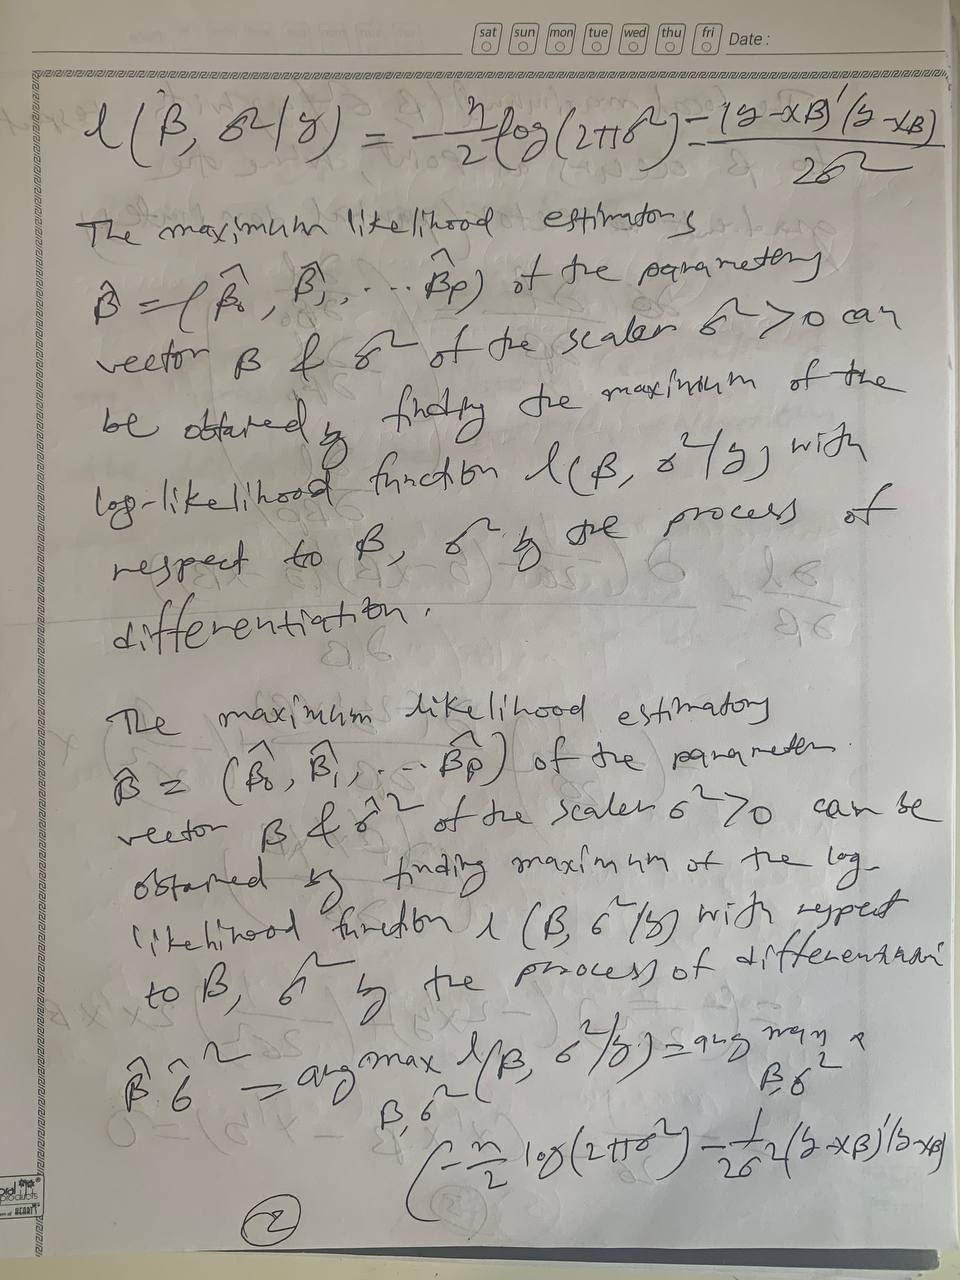 sat sun mon tue wed thu fri Date :
l(β, σ²/y) = -n/2 log(2πσ²) - (y-xβ)'(y-xβ) / 2σ²
The maximum likelihood estimators
β̂ = (β̂₀, β̂₁, ... β̂p) of the parameters
vector β & σ² of the scaler σ² > 0 can
be obtained by finding the maximum of the
log-likelihood function l(β, σ²/y) with
respect to β, σ² by the process of
differentiation.
The maximum likelihood estimators
β̂ = (β̂₀, β̂₁, ... β̂p) of the parameters
vector β & σ̂² of the scaler σ² > 0 can be
obtained by finding maximum of the log-
likelihood function l(β, σ²/y) with respect
to β, σ² by the process of
β̂ σ̂² = arg max l(β, σ²/y) = arg max
β, σ² β, σ²
(-n/2 log(2πσ²) - 1/2σ² (y-xβ)'(y-xβ)
products
HEART
2